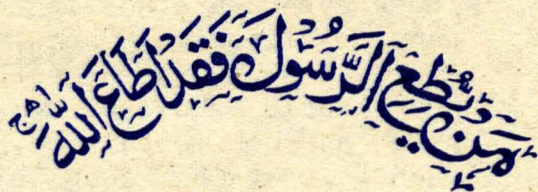 مَنْ يُطِعِ الرَّسُوْلَ فَقَدْ اَطَاعَ اللّٰهَ